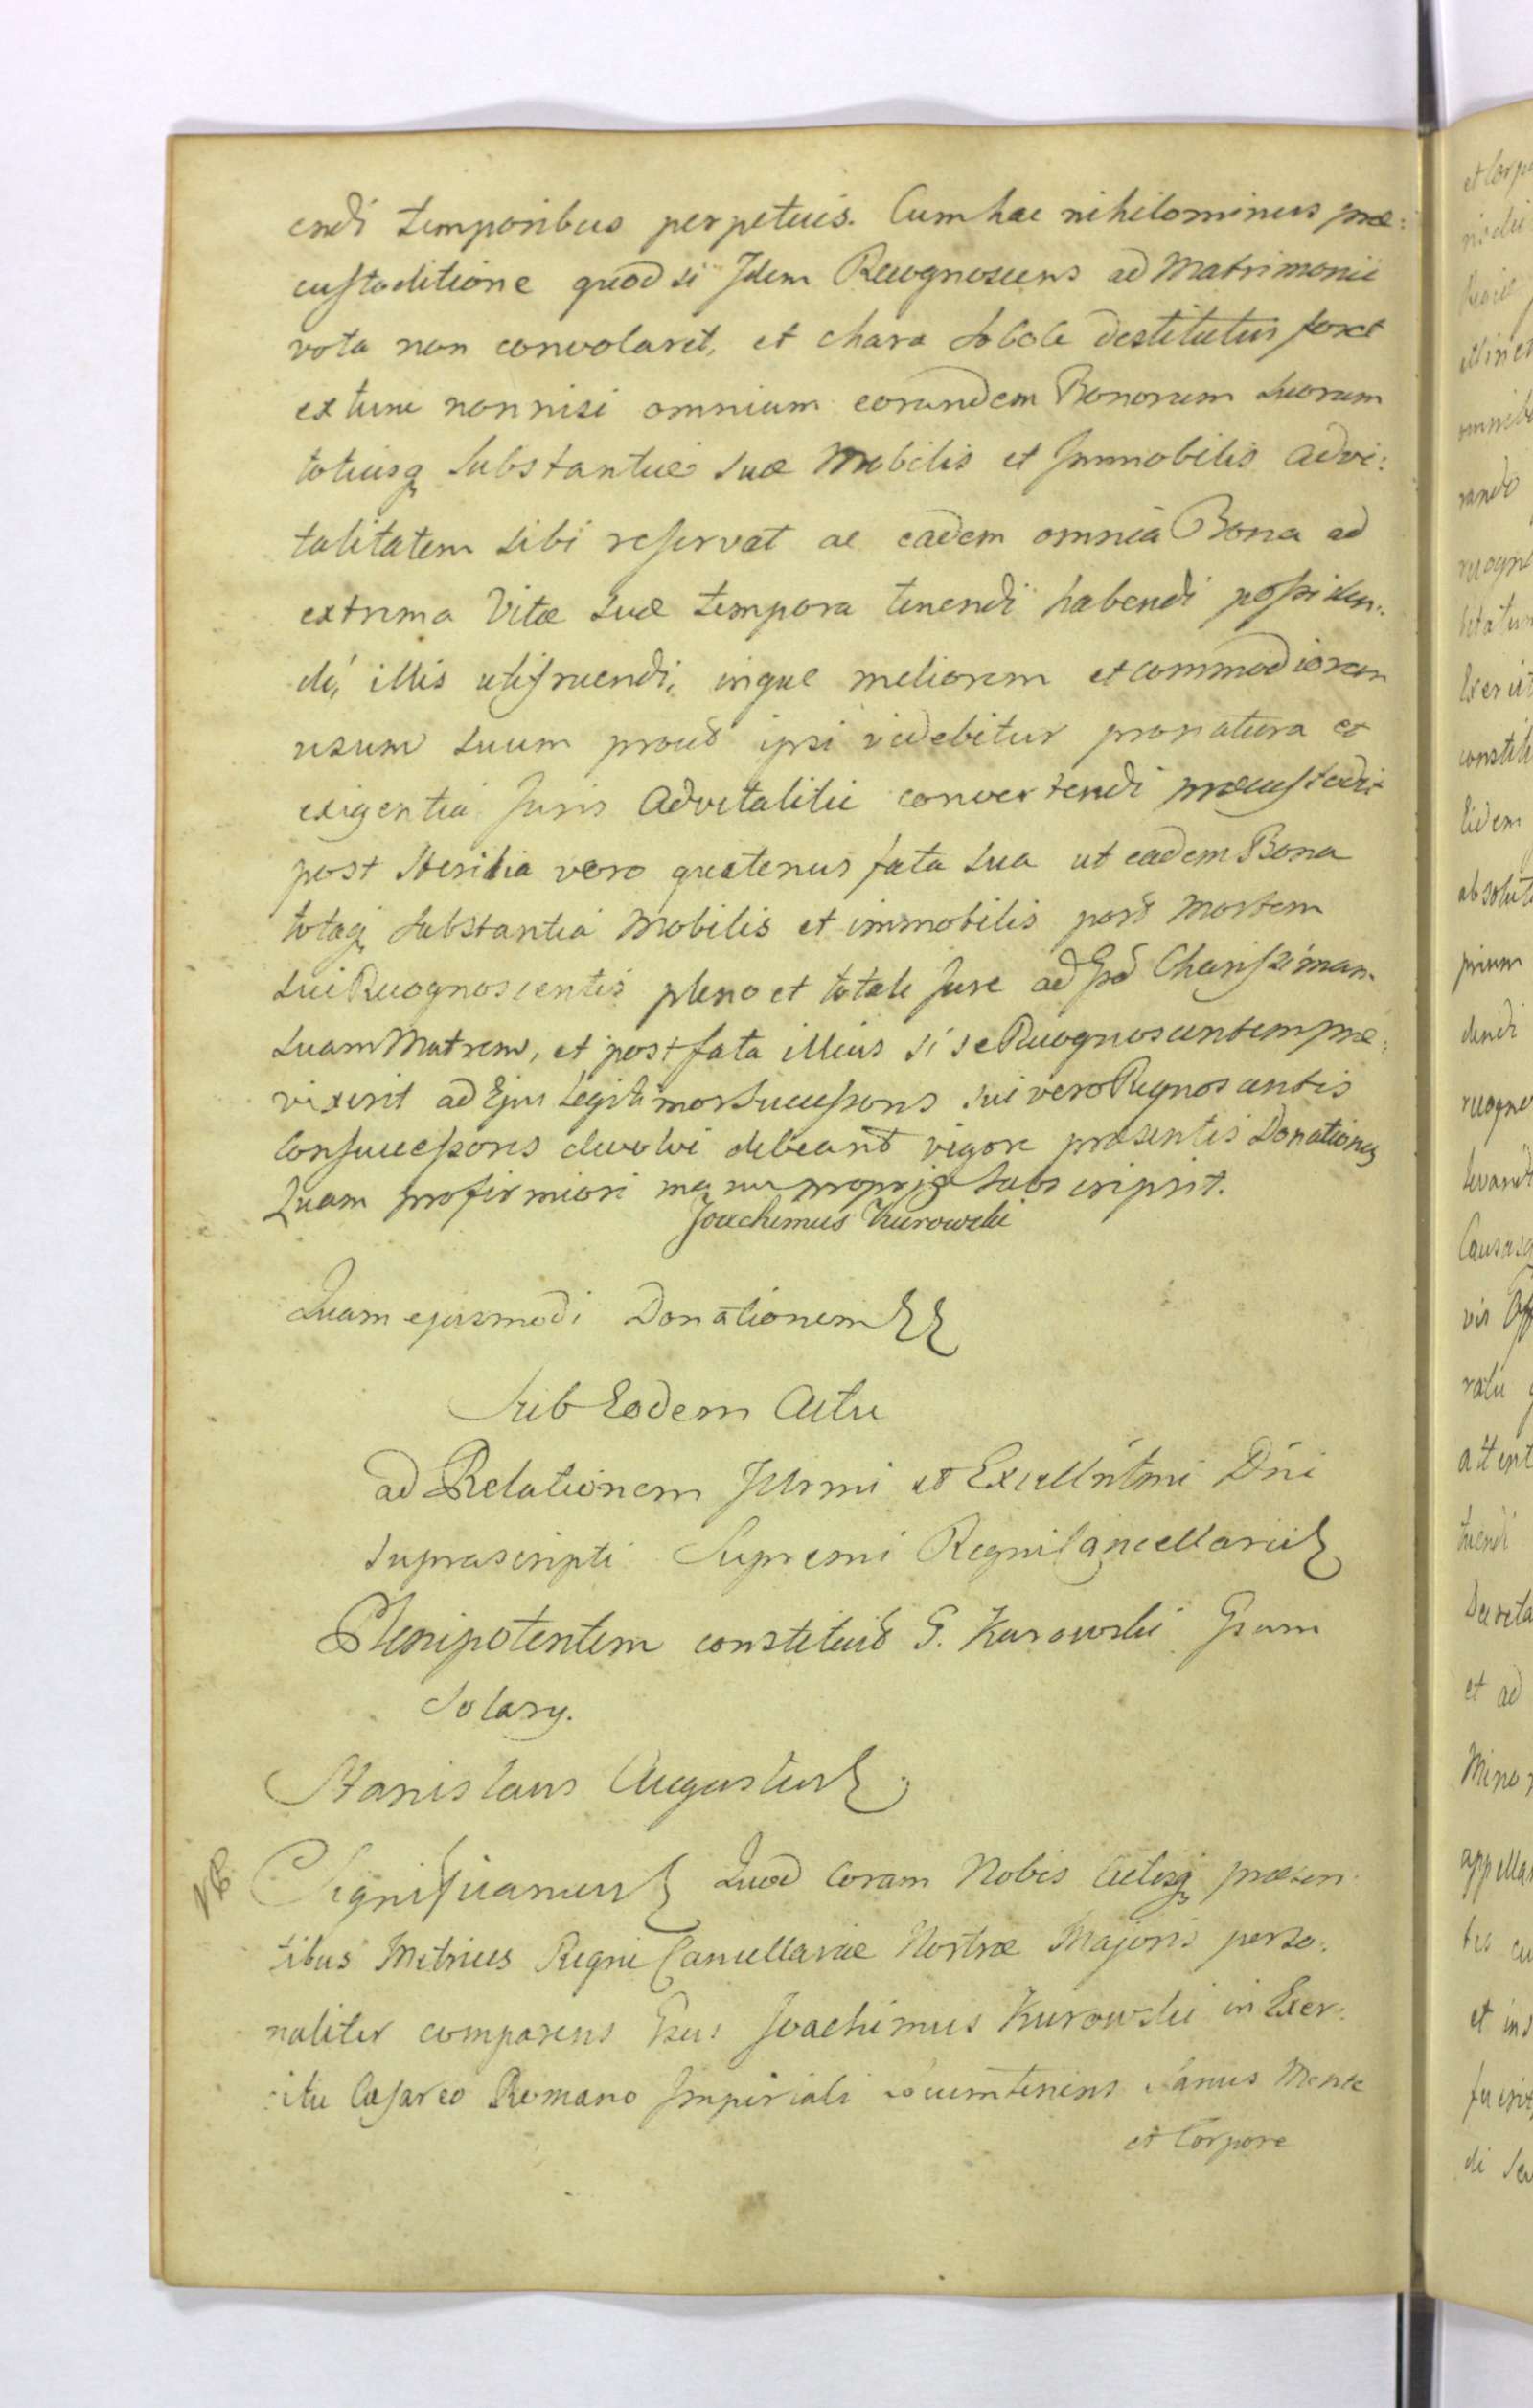 endi temporibus perpetuis. Cum hac nihilominus præ:
custoditione quod si Idem Recognoscens ad Matrimonii
vota non convolaret, et chara Sobole destitutus foret
ex tunc nonnisi omnium eorundem Bonorum suorum
totiusq substantiæ suæ Mobilis et Immobilis advi:
talitatem sibi reservat ac eadem omnia Bona ad
extrema Vitæ suæ tempora tenendi habendi possiden:
di, illis utifruendi, inque meliorem et commodiorem
usum suum prout ipsi videbitur pro natura et
exigentia Juris Advitalitii convertendi præcustodit
post Sterilia vero quatenus fata sua ut eadem Bona
totaq substantia Mobilis et immobilis post Mortem
sui Recognoscentis pleno et totali Jure ad Charissimam
suam Matrem, et post fata illius si se Recognoscentem præ:
vixerit ad Ejus Legitimos Successores sui vero Recgnoscentis
Consuccessores devolvi debeant vigore præsentis Donationis
Quam pro firmiori manu propria subscripsit.
Joachimus Kurowski
Quam ejusmodi Donationem
Sub Eodem Actu
ad Relationem Illrmi et Excellntmi Dni
suprascripti Supremi Regni Cancellarii
Plenipotentem constituit G. Kurowski Gsum
Solary.
Stanislaus Augustus
NB. Significamus Quod Coram Nobis Actisq præsen:
tibus Metrices Regni Cancellariæ Nostræ Majoris perso:
naliter comparens Gsus Joachimus Kurowski in Exer:
citu Cæsareo Romano Imperiali Locumtenens sanus Mente
et Corpore